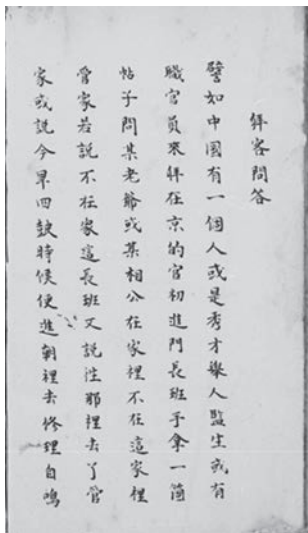 拜客問答
譬如中國有一個人或是秀才舉人監生或有
職官員來拜在京的官初進門長班手拿一箇
帖子問某老爺或某相公在家裡不在這家裡
管家若說不在家這長班又說徃那裡去了管
家或說今早四鼓時候便進朝裡去修理自鳴